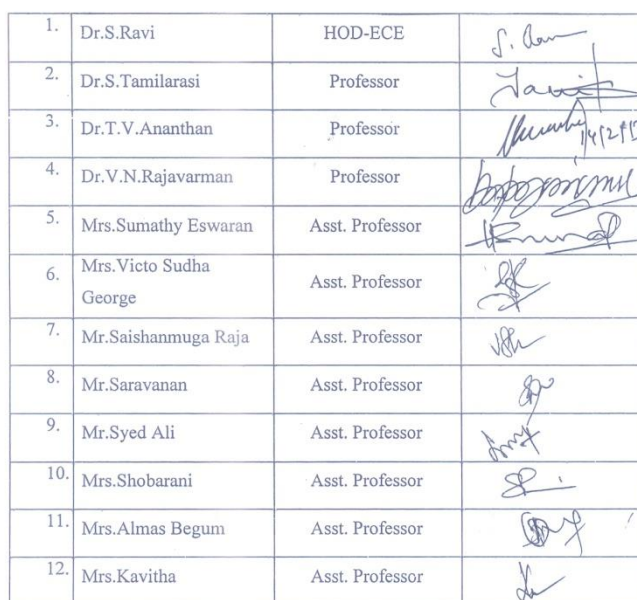 1. Dr.S.Ravi HOD-ECE S. Rav
2. Dr.S.Tamilarasi Professor
3. Dr.T.V.Ananthan Professor
4. Dr.V.N.Rajavarman Professor
5. Mrs.Sumathy Eswaran Asst. Professor
6. Mrs.Victo Sudha
George Asst. Professor
7. Mr.Saishanmuga Raja Asst. Professor
8. Mr.Saravanan Asst. Professor
9. Mr.Syed Ali Asst. Professor
10. Mrs.Shobarani Asst. Professor
11. Mrs.Almas Begum Asst. Professor
12. Mrs.Kavitha Asst. Professor